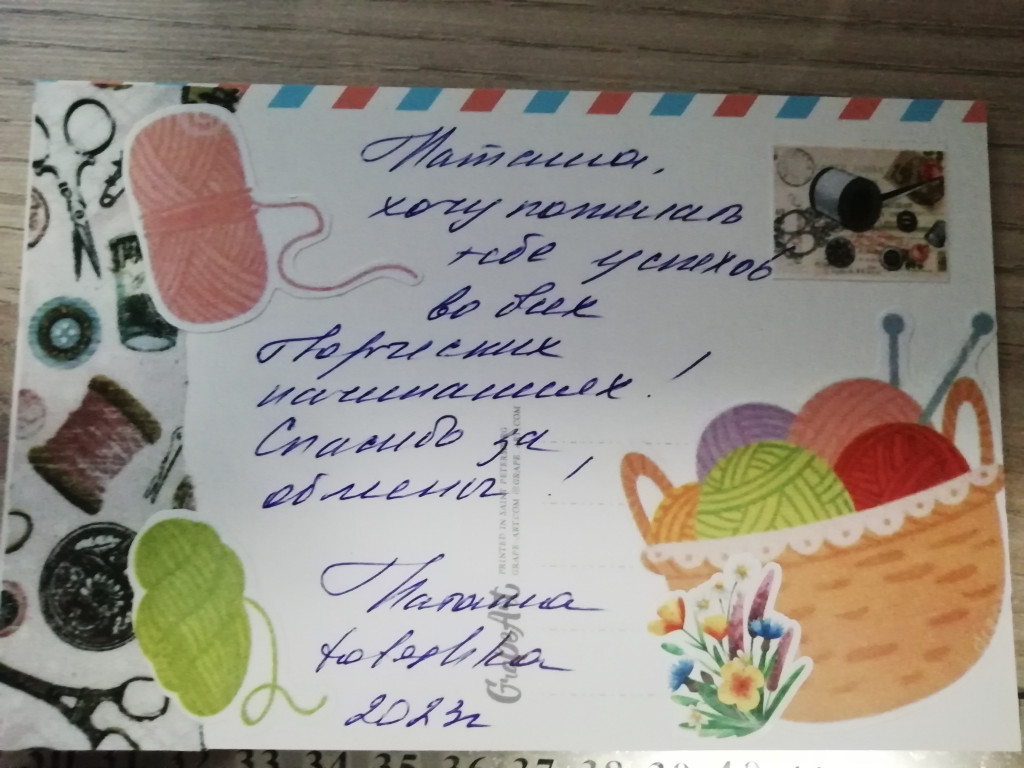 Наташа,
хочу пожелать
тебе успехов
во всех
творческих
начинаниях!
Спасибо за
обмены!
Наташа
2023г
PRINTED IN SAINT PETERSBURG
GRAPE-ART.COM @GRAPE_ART.COM
GrapeArt
30 31 32 33 34 35 36 37 38 39 40